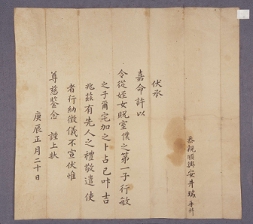 忝親順興安 再拜
伏承
嘉命許以
令從姪女貺室僕之第一子行敏
之子 定加之卜占已叶吉
兆玆有先人之禮敬遣使
者行納徵儀不宣伏惟
尊慈鑒念 謹上狀
庚辰正月二十日